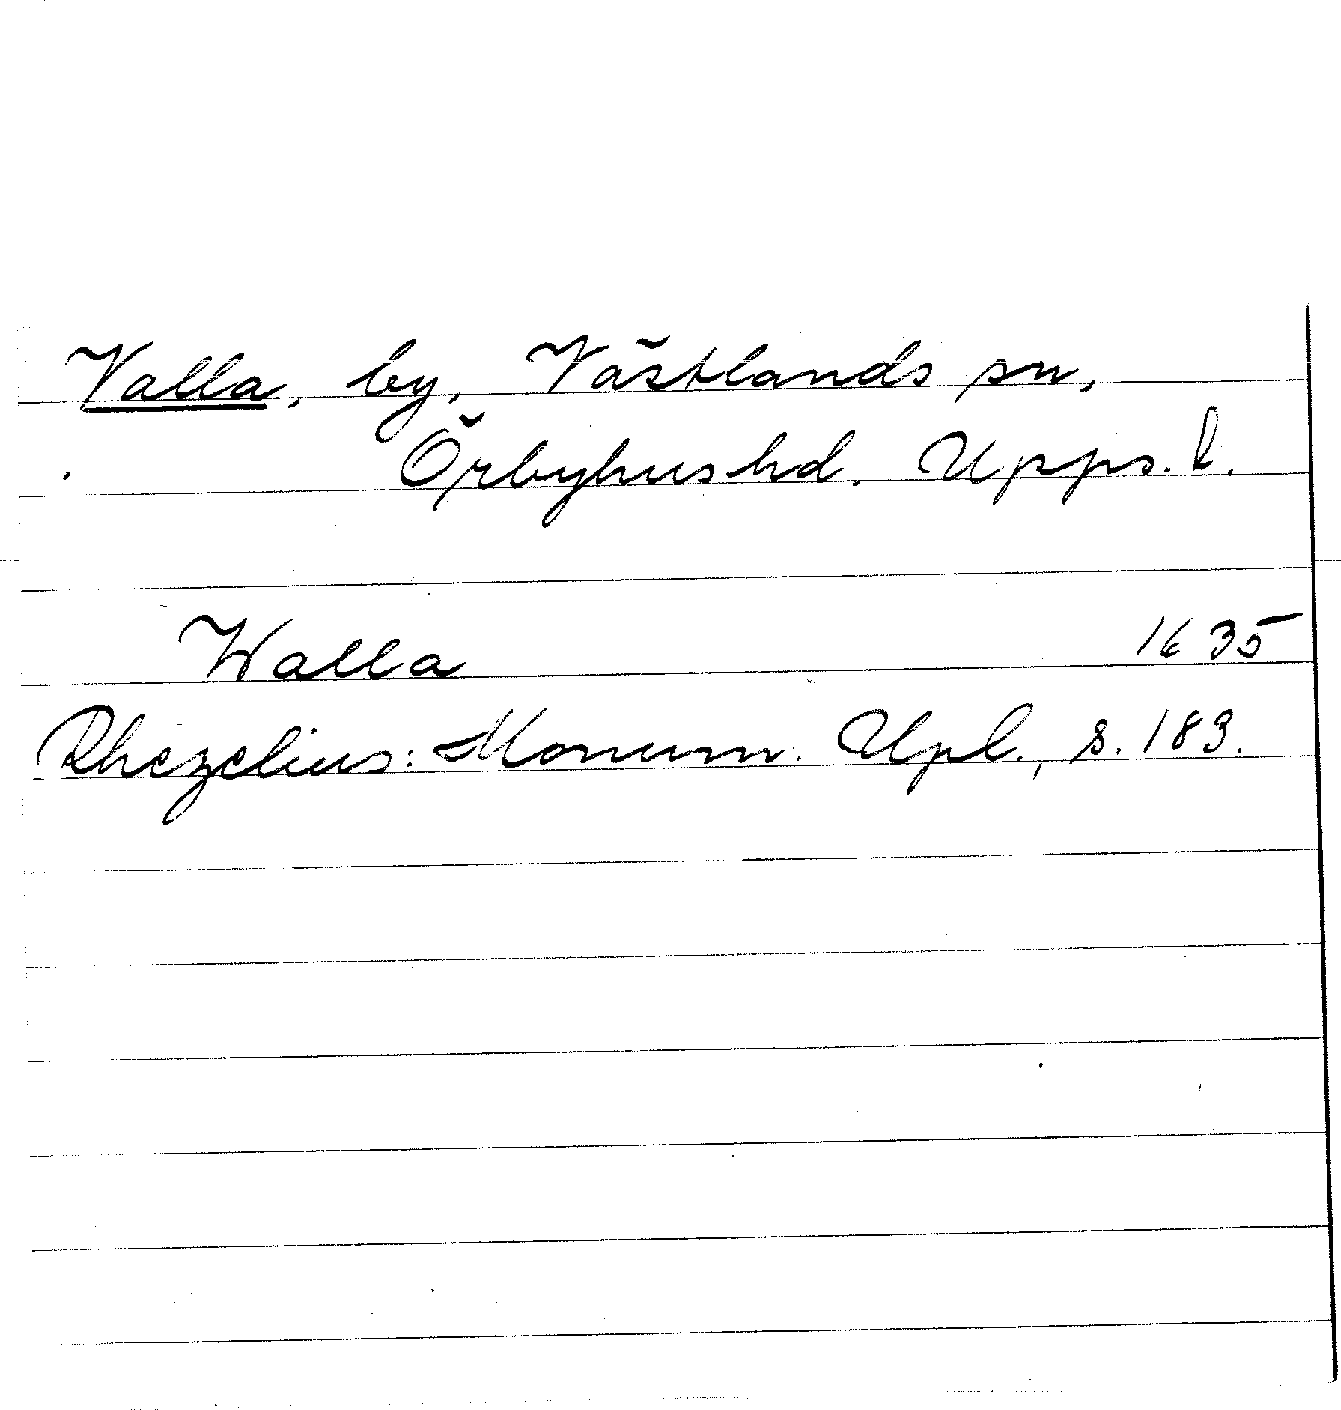 Valla, by, Västlands sn,
Örbyhus hd. Upps. l.
Walla 1635
Rhezelius: Monum. Upl., s. 183.